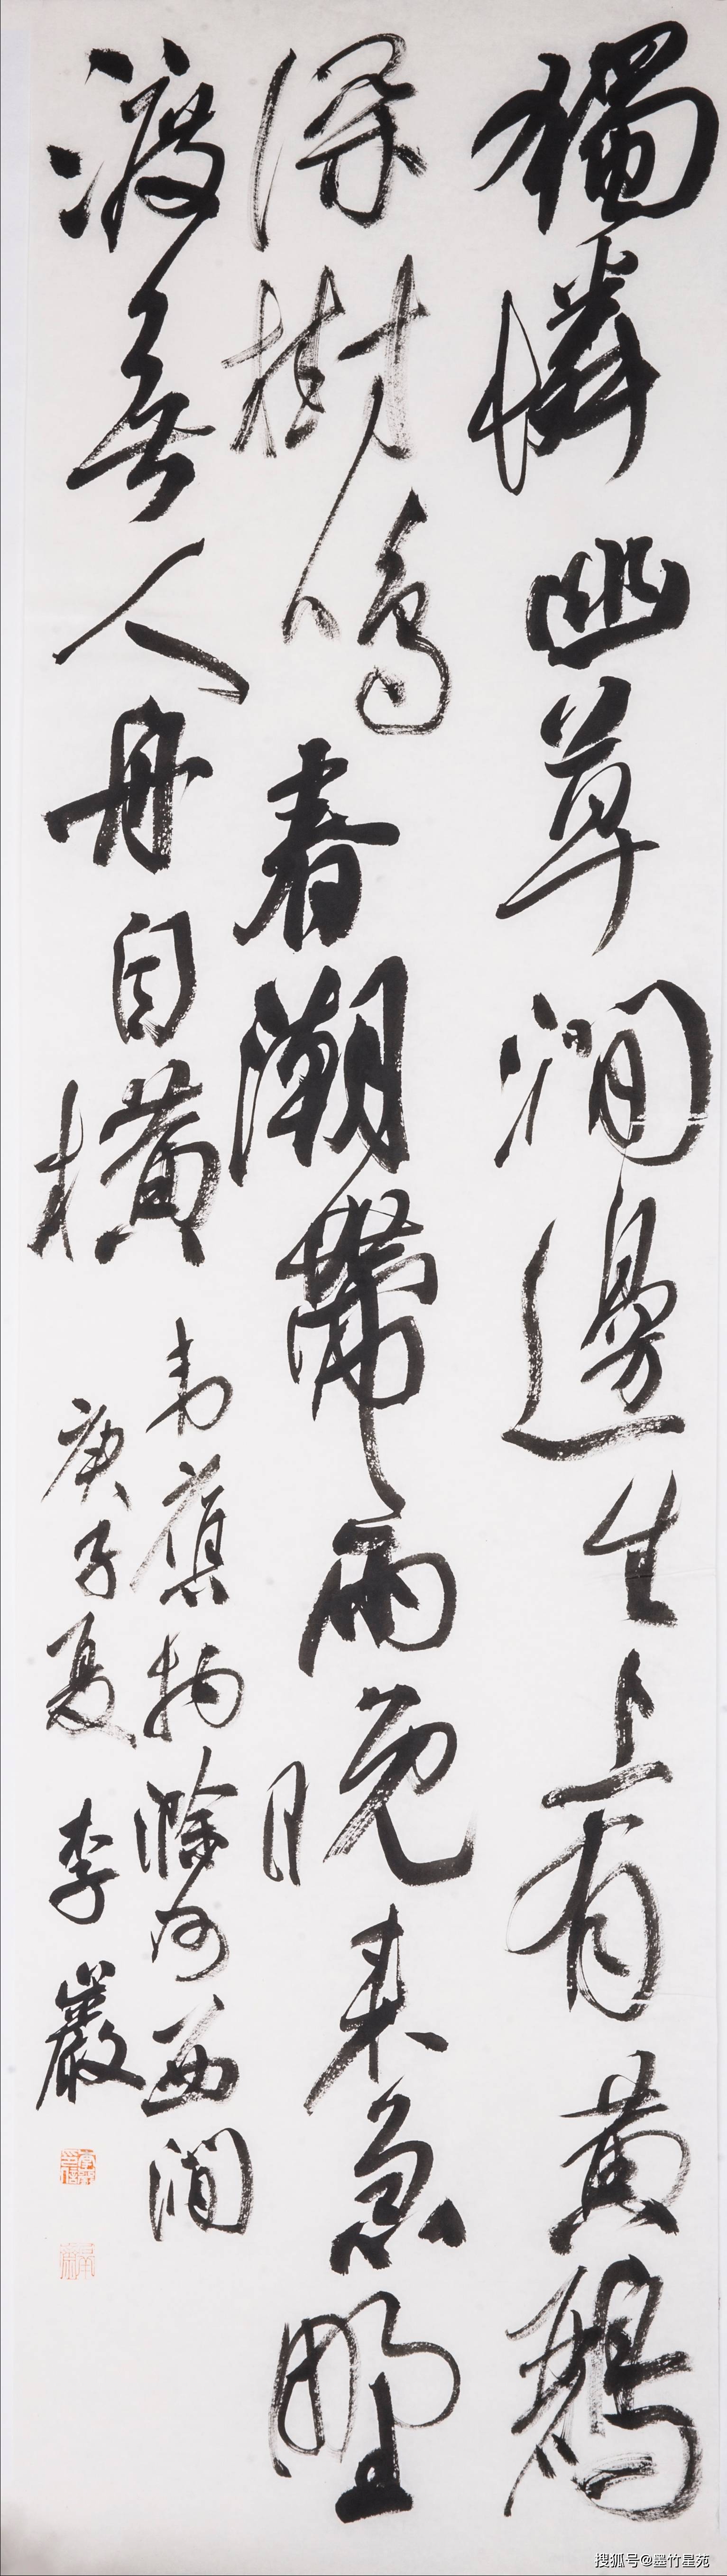 獨憐幽草澗邊生上有黃鸝
深樹鳴春潮帶雨晚來急野
渡無人舟自橫
韋應物滁州西澗
庚子夏 李巖
搜狐号@墨竹星苑